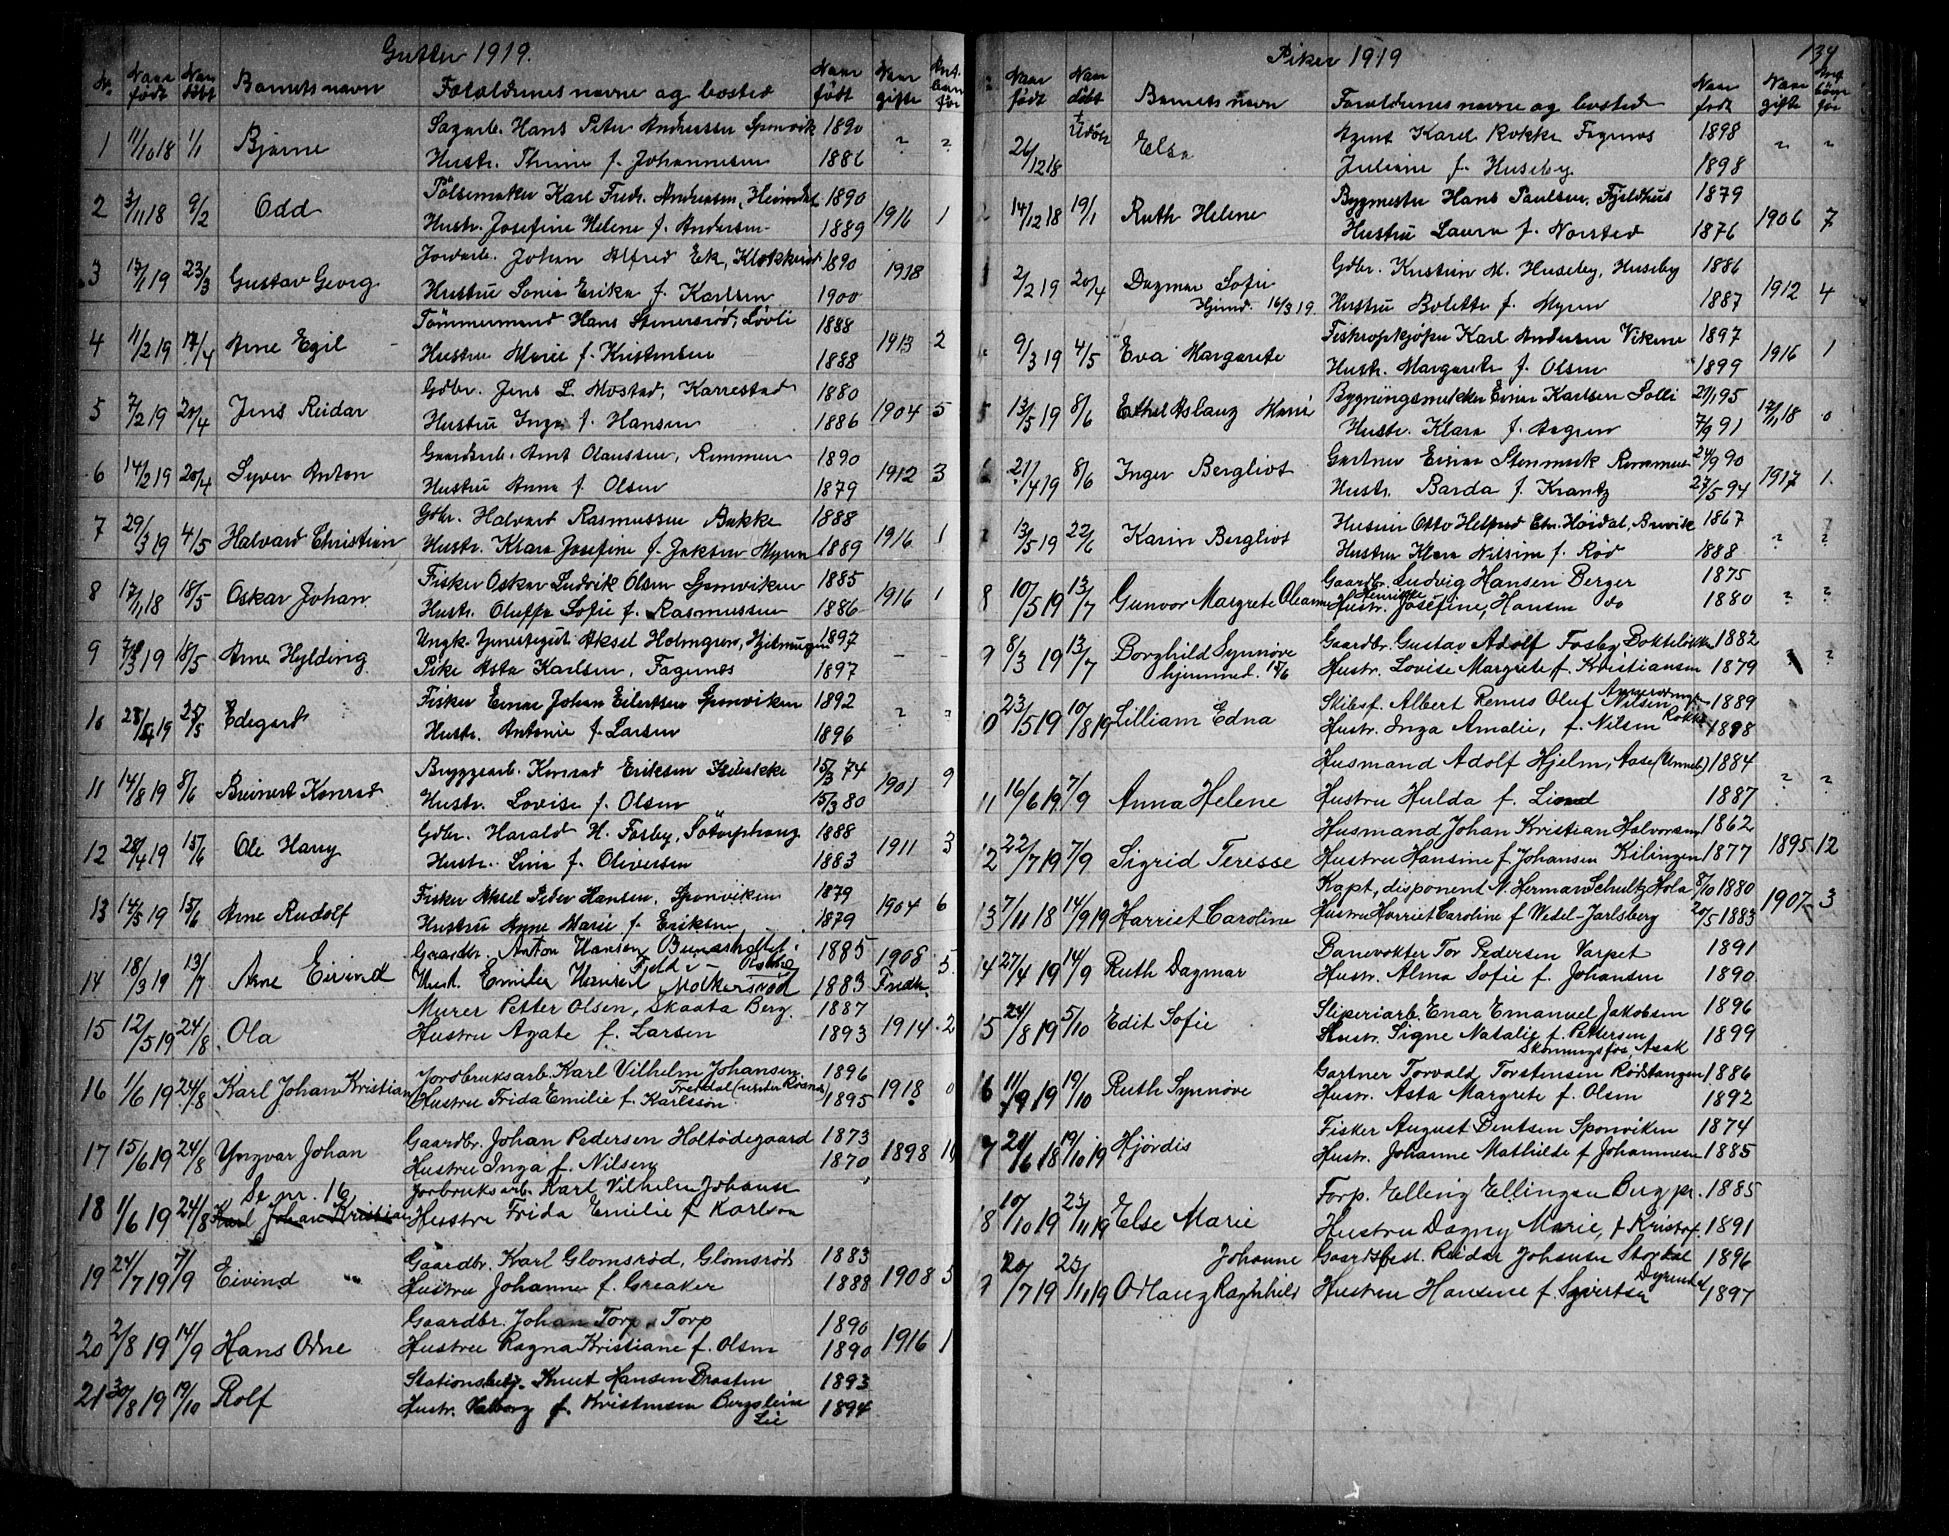 Gutter 1919.
No. Naar født Naar døbt Barnets navn Forældrenes navne og bosted Naar født Naar gifte Ant. barn før
1 11/10 18 1/1 Bjarne Sagarb. Hans Peter Andreassen Sponvik 1890 ? ?
Hustr. Thrine f. Johannesen 1886
2 3/11 18 9/2 Odd Pølsemaker Karl Fredr. Andreassen, Heimdal 1890 1916 1
Hustr. Josefine Helene f. Andersen 1889
3 17/1 19 23/3 Gustav Georg Jordarb. Johan Alfred Ek, 1890 1918
Hustru Sonia Erika f. Karlsen 1900
4 11/2 19 17/4 Arne Egil Tømmermand Hans Stenersrød, Løvli 1888 1913 2
Hustru Marie f. Kristensen 1888
5 7/2 19 20/4 Jens Reidar Gdbr. Jens L. Mostad, Karrestad 1880 1904 5
Hustru Inga f. Hansen 1886
6 14/2 19 20/4 Syver Anton Gaardarb. Arnt Olaussen, Remmen 1890 1912 3
Hustru Anna f. Olsen 1879
7 29/3 19 4/5 Halvard Christian Gdbr. Halvard Rasmussen Bakke 1888 1916 1
Hustr. Klara Josefine f. Jaksen Myren 1889
8 17/11 18 18/5 Oskar Johan Fisker Oskar Ludvik Olsen Sponviken 1885 1916 1
Hustr. Oluffa Sofie f. Rasmussen 1886
9 3 19 18/5 Arne Hylding Ungk. Aksel Holmgren, 1897 – –
Pike Asta Karlsen, Fagernes 1897
10 28/4 19 25/5 Edegard Fisker Einar Johan Eilertsen Sponviken 1892 ? ?
Hustr. Antonie f. Larsen 1896
11 14/8 19 8/6 Konrad Bryggearb. Konrad Eriksen 15/3 74 1901 9
Hustr. Lovise f. Olsen 15/3 80
12 28/4 19 15/6 Ole Harry Gdbr. Harald H. Fosby, 1888 1911 3
Hustr. Lina f. Oliversen 1883
13 14/5 19 15/6 Arne Rudolf Fisker Aksel Peder Hansen, Sponviken 1879 1904 6
Hustru Anne Marie f. Eriksen 1879
14 18/3 19 13/7 Arne Eivind Gaardbr. Anton Hansen 1885 1908 5
Hust. Emilie 1883 Fredr.
15 12/5 19 24/8 Ola Murer Petter Olsen, Skaata Berg. 1887 1914 2
Hustru Agate f. Larsen 1893
16 1/6 19 24/8 Karl Johan Kristian Jordbruksarb. Karl Vilhelm Johansen 1896 1918 0
Hustru Frida Emilie f. Karlsson 1895
17 15/6 19 24/8 Yngvar Johan Gaardbr. Johan Pedersen Holtødegaard 1873 1898
Hustru Inga f. Nilsen 1870
Se nr. 16
18 1/6 19 24/8 Karl Johan Kristian Jorbruksarb. Karl Vilhelm Johansen
Hustru Frida Emilie f. Karlson
19 24/7 19 7/9 Eivind Gaardbr. Karl Glomsrød, Glomsrød 1883 1908 5
Hustru Johanne f. Greaker 1888
20 2/8 19 14/9 Hans Odne Gaardbr. Johan Torp, Torp 1890 1916 1
Hustru Ragna Kristiane f. Olsen 1890
21 30/8 19 19/10 Rolf Stationsbetj. Knut Hansen Brasten 1893
Hustr. Valborg f. Kristensen 1894
Lie
134
Piker 1919
Naar født Naar døbt Barnets navn Forældrenes navne og bosted Naar født Naar gifte Ant. børn før
26/12 18 Udøbt Elsa Agent Karel Rokke Fagernes 1898 " "
Juliane f. Huseby 1898
2 14/12 18 19/1 Ruth Helene Bygmester Hans Paulsen, Fjeldhus 1879 1906 7
Hustru Laura f. Norsted 1876
2/2 19 20/4 Dagmar Sofie Gdbr. Kristian M. Huseby, Huseby 1886 1912 4
Hjemd. 16/3 19. Hustru Bolette f. Myren 1887
9/3 19 4/5 Eva Margarete Fiskeopkjøper Karl Andersen Vikene 1897 1916 1
Hustr. Margarete f. Olsen 1899
5 13/5 19 8/6 Ethel Aslaug Marie Bygningssnekker Einar Karlsen Solli 95 17/11 18 0
Hustr. Klara f. Aagren 7/9 91
6 21/4 19 8/6 Inger Bergliot Gartner Einar Stenmark Remmen 24/9 90 1917 1.
Hustr. Barda f. Krantz 27/5 94
7 13/5 19 22/6 Karin Bergliot Husmn Otto Helfred Chr. Høidal, 1867 ? ?
Hustru Klara Nilsine f. Rød 1888
8 10/5 19 13/7 Gunvor Margrete Oleanna Gaardbr. Ludvig Hansen Berger 1875
Hustr. Henrikke Josefine, Hansen do 1880 ? ?
9 8/3 19 13/7 Borghild Synnøve Gaardbr. Gustav Adolf Fosby 1882
hjemmed. 15/6 Hustr. Lovise Margrete f. Kristiansen 1879 ?
10 23/5 19 10/8 19 Lilliam Edna Skibsf. Albert Remus Oluf Nilsen 1889
Hustr. Inga Amalie, f. Nilsen Rokke 1898
11 16/6 19 7/9 Anna Helene Husmand Adolf Hjelm, Aase 1884 ? ?
Hustru Hulda f. Liound 1887
12 22/7 19 7/9 Sigrid Teresse Husmand Johan Kristian Halvorsen 1862 1895 12
Hustru Hansine f. Johansen Kilingen 1877
13 7/11 18 14/9 19 Harriet Caroline Kapt., disponent N. Herman Schultz Hola 8/10 1880 1907 3
Hustru Harriet Caroline f Wedel-Jarlsberg 20/5 1883
14 27/4 19 14/9 Ruth Dagmar Banevokter Tor Pedersen Varpet 1891
Hustr. Alma Sofie f. Johansen 1890.
15 24/8 19 5/10 Edit Sofie Sliperiarb. Enar Emanuel Jakobsen 1896
Hustr. Signe Natalie f. Pettersen 1899
Skonningsfos, Asak
16 11/9 19 19/10 Ruth Synnøve Gartner Torvald Torstensen Rødstangen 1886
Hustr. Asta Margrete f. Olsen 1892
17 21/6 18 19/10 19 Hjørdis Fisker August Bentsen Sponviken 1874
Hustr. Johanne Mathilde f Johannesen 1885
18 10/10 19 23/11 19 Else Marie Forp. Elling Ellingsen Berg pr. 1885
Hustru Dagny Marie, f Kristof. 1891
Johanne
19 20/7 19 23/11 19 Odlaug Ragnhild Gaardsbest. Reidar Johansen 1896
Hustru Hansine f. Syvertsen 1897